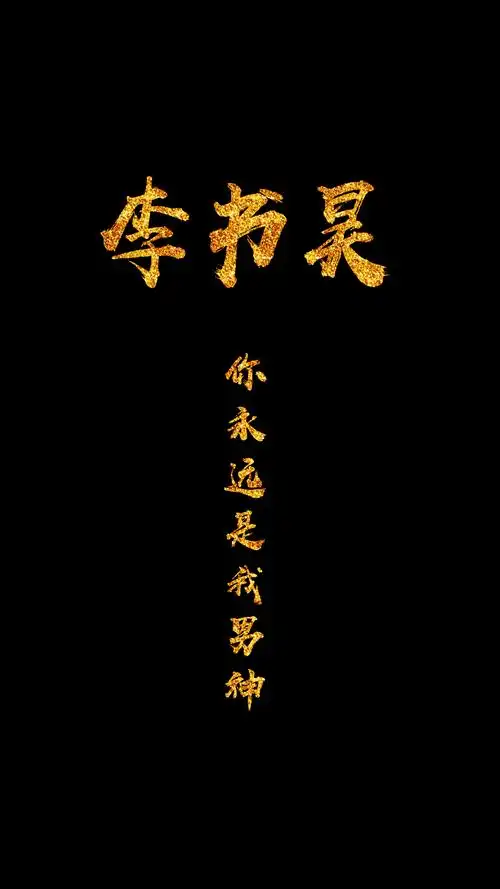 李书昊
你永远是我男神